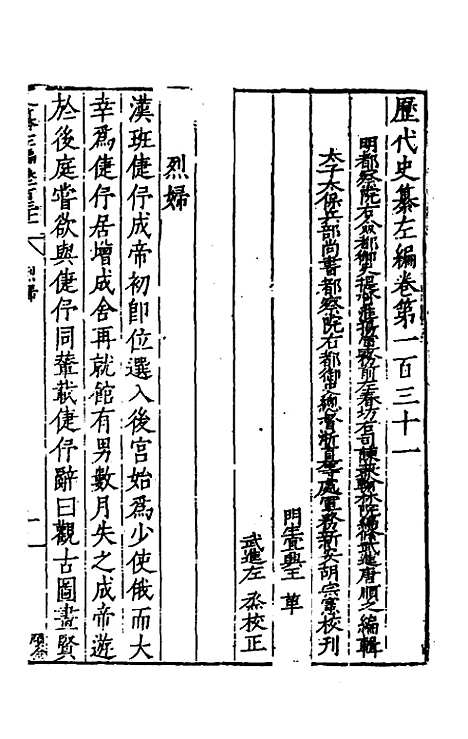 歷代史纂左編卷第一百三十一
明都察院右僉都御史提督淮揚軍務前左春坊右司諫兼翰林院編修武進唐順之編輯
太子太保兵部尚書都察院右都御史總督浙直等處軍務新安胡宗憲校刊
明生
武進左烝校正
烈婦
漢班倢伃成帝初即位選入後宮始爲少使俄而大
幸爲倢伃居增成舍再就館有男數月失之成帝遊
於後庭嘗欲與倢伃同輦載倢伃辭曰觀古圖畫賢